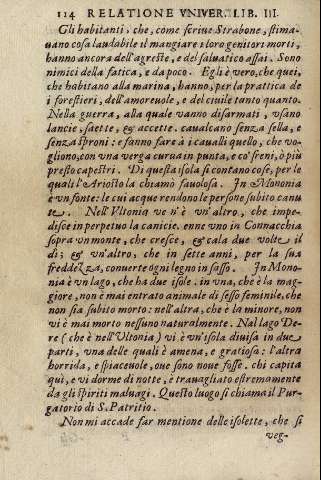 114 RELATIONE VNIVER. LIB. III.
Gli habitanti, che, come scriue Strabone, stima-
uano cosa laudabile il mangiare i loro genitori morti,
hanno ancora dell'agreste, e del saluatico assai. Sono
nimici della fatica, e da poco. Egli è vero, che quei,
che habitano alla marina, hanno, per la prattica de
i forestieri, dell'amoreuole, e del ciuile tanto quanto.
Nella guerra, alla quale vanno disarmati, vsano
lancie, saette, & accette. caualcano senza sella, e
senza sproni: e fanno fare à i caualli quello, che vo-
gliono, con vna verga curua in punta, e co' freni, ò più
presto capestri. Di questa isola si contano cose, per le
quali l'Ariosto la chiamò fauolosa. In Mononia
è vn fonte: le cui acque rendono le persone subito canu
te. Nell'Vltonia ve n'è vn'altro, che impe-
disce in perpetuo la canicie. enne vno in Connacchia
sopra vn monte, che cresce, & cala due volte il
dì; & vn'altro, che in sette anni, per la sua
freddezza, conuerte ogni legno in sasso. In Mono-
nia è vn lago, che ha due isole. in vna, che è la mag-
giore, non è mai entrato animale di sesso feminile, che
non sia subito morto: nell'altra, che è la minore, non
vi è mai morto nessuno naturalmente. Nal lago De-
re (che è nell'Vltonia) vi è vn'isola diuisa in due
parti, vna delle quali è amena, e gratiosa: l'altra
horrida, e spiaceuole, oue sono noue fosse. chi capita
quì, e vi dorme di notte, è trauagliato estremamente
da gli spiriti maluagi. Questo luogo si chiama il Pur-
gatorio di S. Patritio.
Non mi accade far mentione delle isolette, che si
veg-